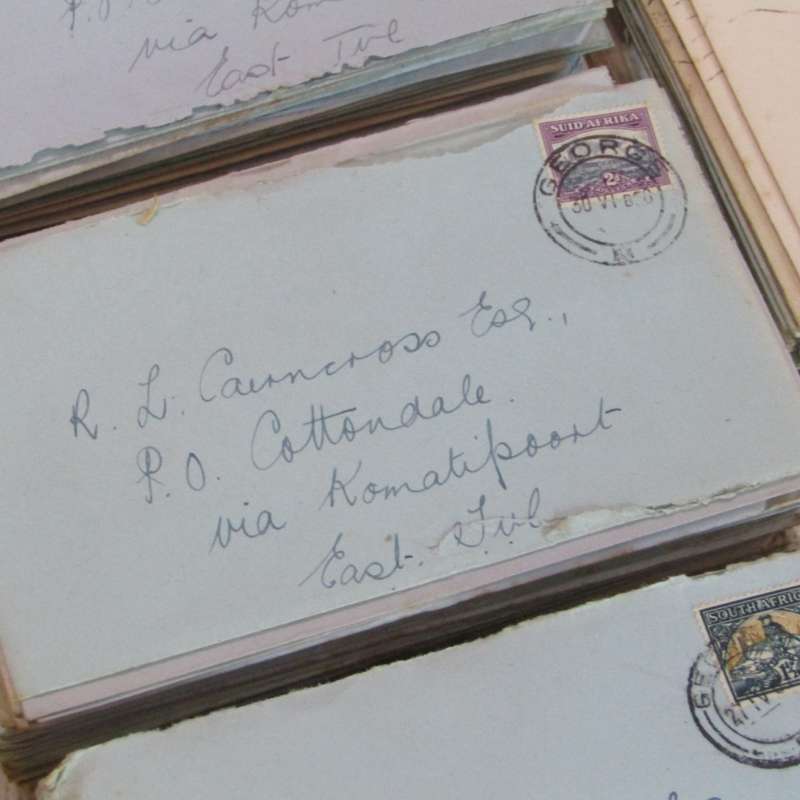 P.O.
via
East Tvl
SUID-AFRIKA
2
GEORGE
30 VI
R. L. Cairncross Esq.,
P.O. Cottondale.
via Komatipoort
East. Tvl
SOUTH AFRICA
1½
27 IV